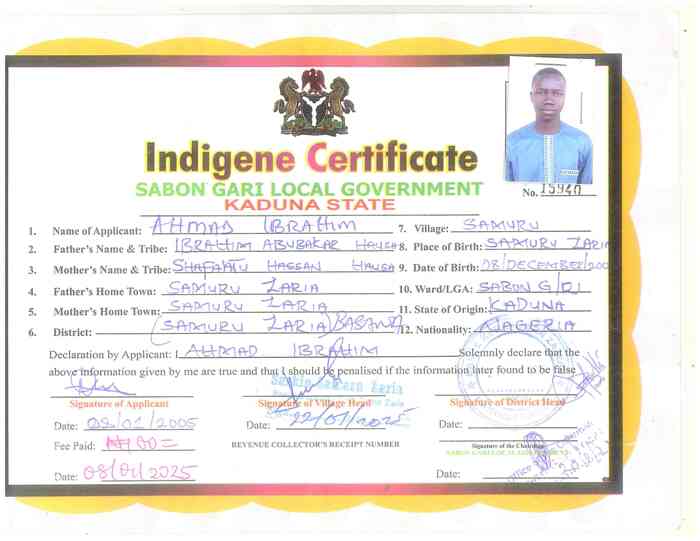 Indigene Certificate
SABON GARI LOCAL GOVERNMENT
KADUNA STATE
No. 15940
1. Name of Applicant: AHMAD IBRAHIM 7. Village: SAMURU
2. Father's Name & Tribe: IBRAHIM ABUBAKAR HAUSA 8. Place of Birth: SAMURU ZARIA
3. Mother's Name & Tribe: HASSAN HAUSA 9. Date of Birth: 08/DECEMBER/200
4. Father's Home Town: SAMURU ZARIA 10. Ward/LGA: SABON G/
5. Mother's Home Town: SAMURU ZARIA 11. State of Origin: KADUNA
6. District: (SAMURU ZARIA) 12. Nationality: NAGERIA
Declaration by Applicant: I AHMAD IBRAHIM Solemnly declare that the
above information given by me are true and that I should be penalised if the information later found to be false
Signature of Applicant Signature of Village Head Signature of District Head
Date: 02/01/2005 Date: 22/01/2025 Date:
Fee Paid: REVENUE COLLECTOR'S RECEIPT NUMBER Signature of the Chairman
SABON GARI LOCAL GOVERNMENT
Date: 08/01/2025 Date: